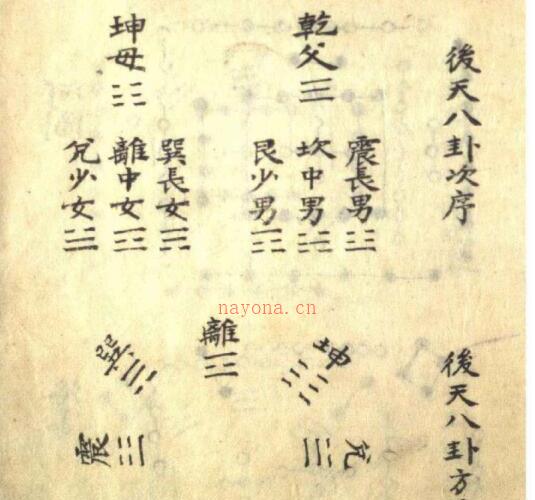 後天八卦次序
乾父☰
坤母☷
震長男☳
坎中男☵
艮少男☶
巽長女☴
離中女☲
兌少女☱
nayona.cn
後天八卦方
離☲
坤☷
巽☴
兌☱
震☳